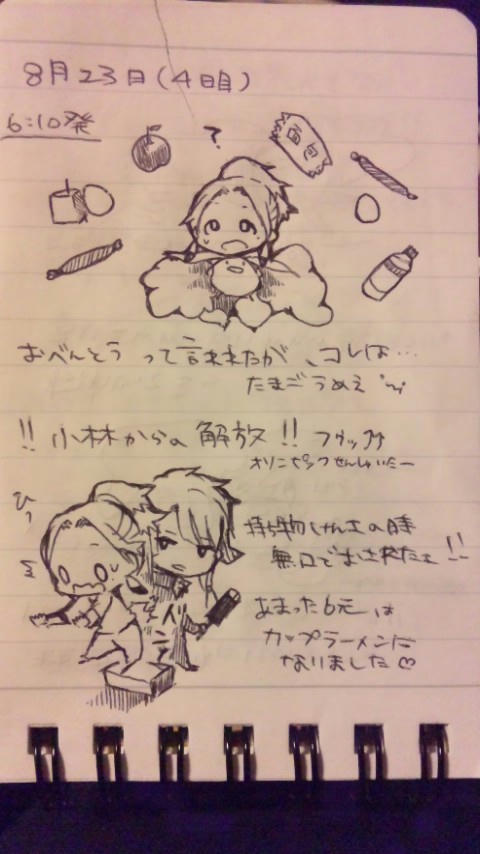 8月23日(4日目)
6:10発
?
面包
おべんとうって言われたが、コレは…
たまごうめえ
!! 小林からの解放!!
オリンピックせんしゅいたー
ひぃ
持ち物けんさの時
無口でおされたよ!!
あまった6元は
カップラーメンに
なりました♡